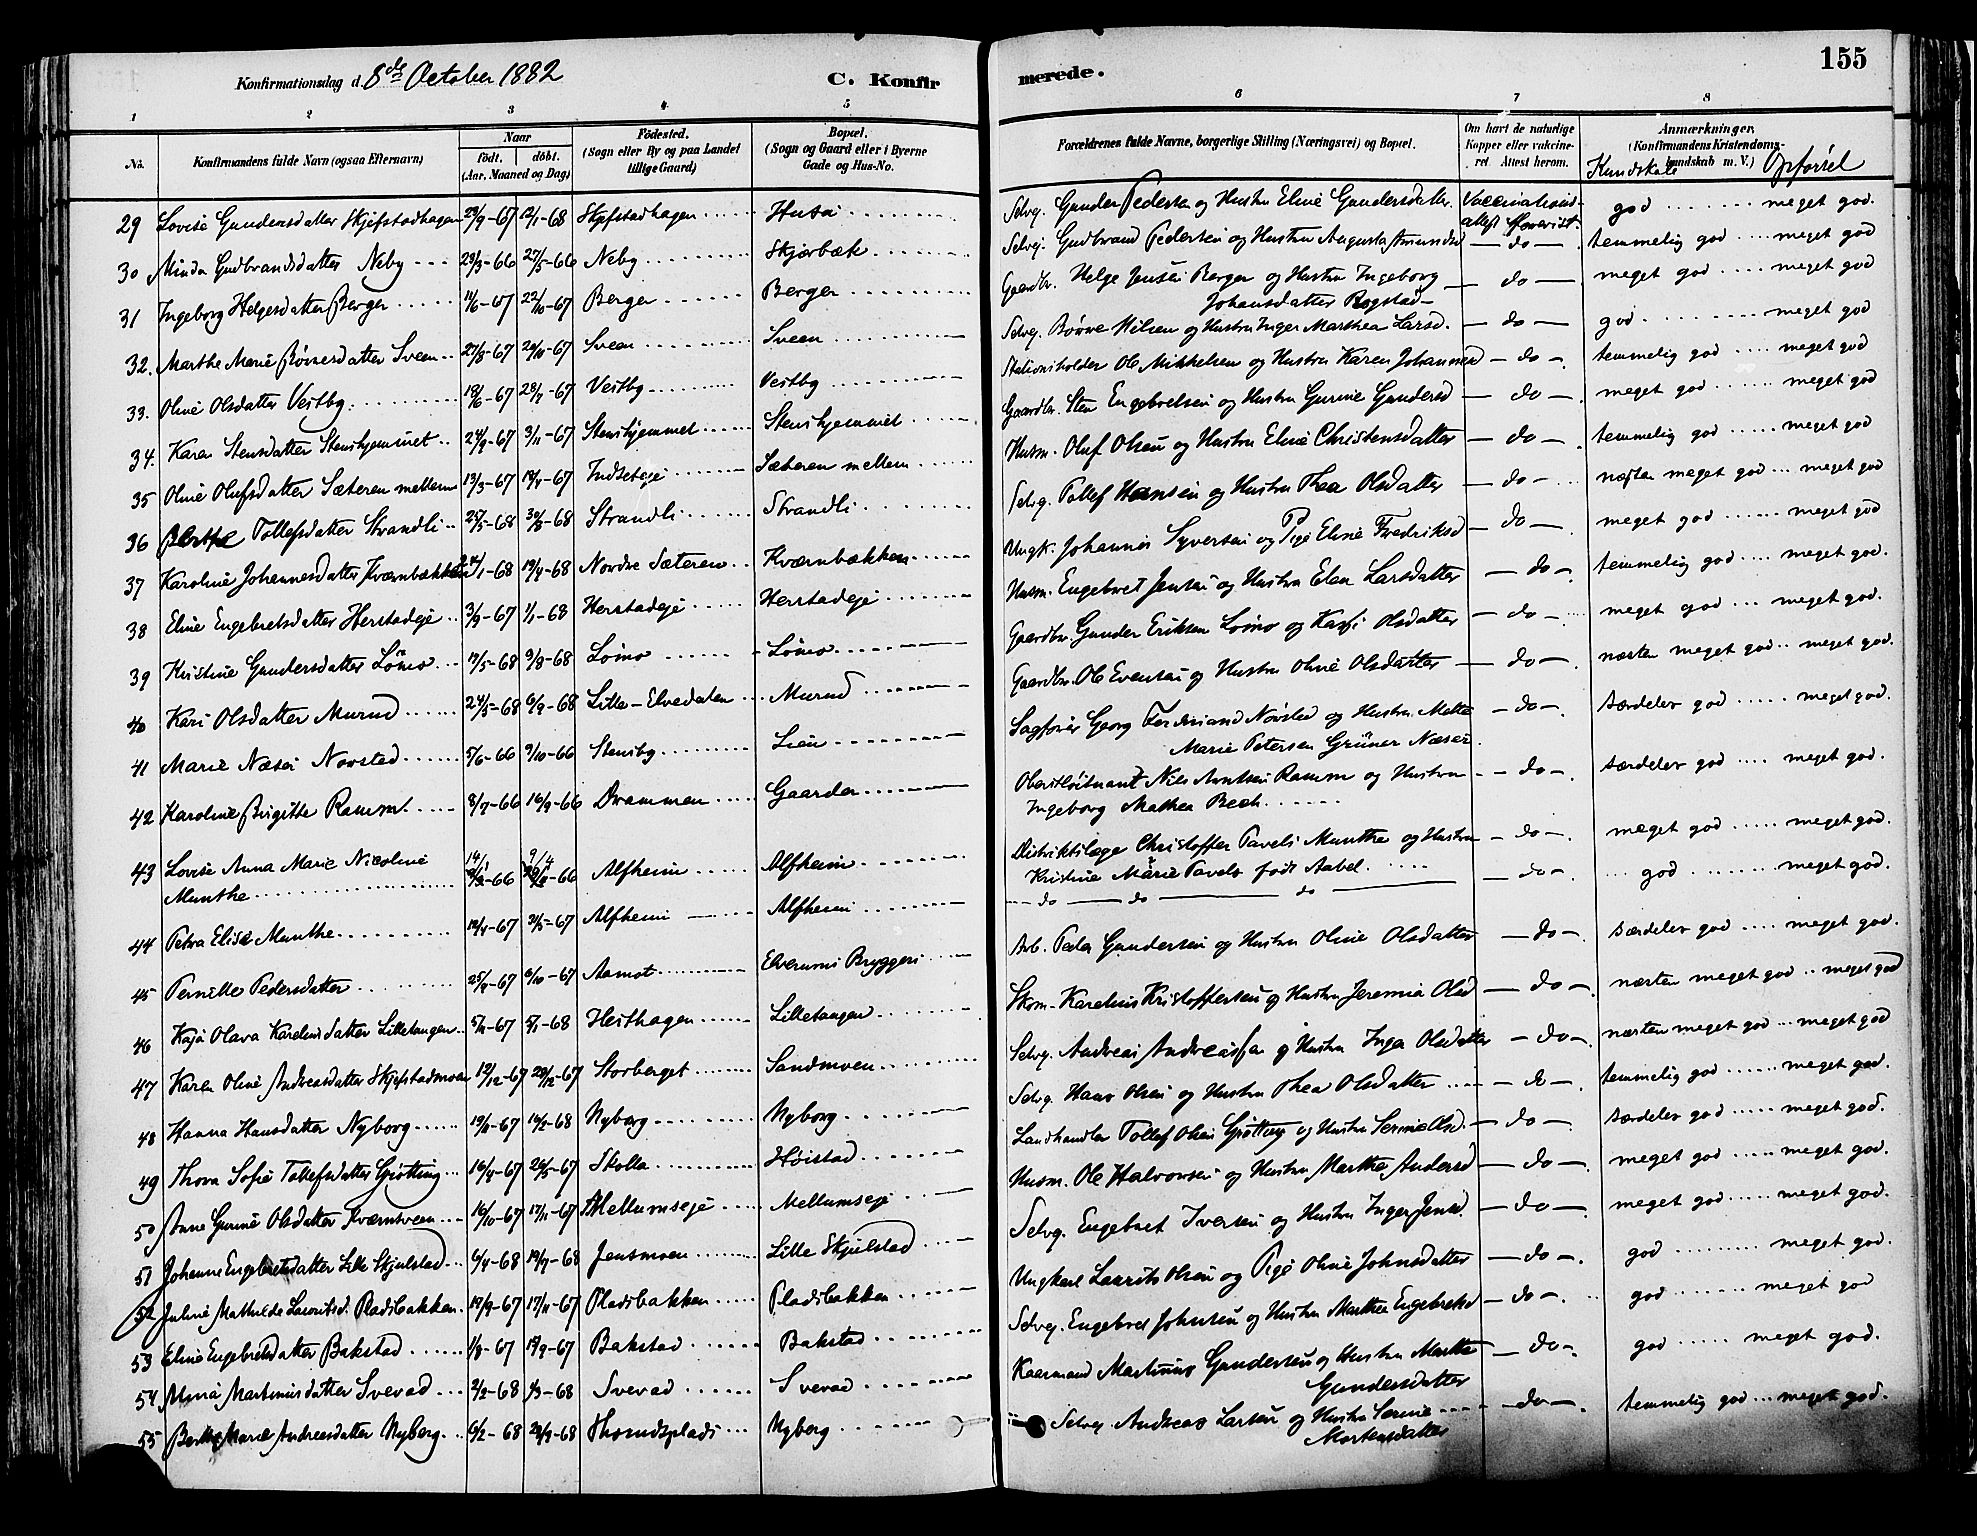 155
Konfirmationsdag d. 8de October 1882
C. Konfirmerede.
1 2 3 4 5 6 7 8
No. Konfirmandens fulde Navn (ogsaa Efternavn) Naar födt. döbt. (Aar, Maaned og Dag) Födested. (Sogn eller By og paa Landet tillige Gaard) Bopæl. (Sogn og Gaard eller i Byerne Gade og Hus-No. Forældrenes fulde Navne, borgerlige Stilling (Næringsvei) og Bopæl. Om havt de naturlige Kopper eller vaccineret. Attest herom. Anmærkninger. (Konfirmandens Kristendomskundskab m. V.) Kundskab Opførsel
29 Lovise Gundersdatter Skjefstadhagen 29/9-67 12/1-68 Skjefstadhagen Husai Selvej. Gunder Pedersen og Hustru Eline Gundersdatter. Vaccinationsattest forevist. god meget god.
30 Minda Gudbrandsdatter Neby 29/3-66 27/5-66 Neby Skjørbæk Selvej. Gudbrand Pedersen og Hustru Augusta Amundsd do temmelig god meget god
31 Ingeborg Helgesdatter Berger 11/6-67 22/10-67 Berger Berger Gaardbr. Helge Jensen Berger og Hustru Ingeborg Johansdatter Rogstad do meget god meget god
32. Marthe Marie Børresdatter Sveen 27/8-67 20/10-67 Sveen Sveen Selvej. Børre Nilsen og Hustru Inger Marthea Larsd. do god meget god
33. Oline Olsdatter Vestby 18/6-67 28/7-67 Vestby Vestby Stationsholder Ole Mikkelsen og Hustru Karen Johannesd do temmelig god meget god
34. Karen Stensdatter Stenshjemmet 24/9-67 3/11-67 Stenshjemmet Stenshjemmet Gaardbr. Sten Engebretsen og Hustru Gurine Gundersd do meget god meget god
35 Oline Olufsdatter Sæteren mellem 13/3-67 Indsetejé Sæteren mellem Husm. Oluf Olsen og Hustru Eline Christensdatter do temmelig god meget god
36 Berthe Tollefsdatter Strandli 25/5-68 30/8-68 Strandli Strandli Selvej. Tollef Hansen og Hustru Thea Olsdatter do næsten meget god meget god
37 Karoline Johannesdatter Kværnbækken 1-68 19/4-68 Nordre Sæteren Kværnbækken Ungk. Johannes Syversen og Pige Eline Fredriksd do meget god meget god
38 Eline Engebretsdatter Herstadeje 3/9-67 1/1-68 Herstadeje Herstadeje Husm. Engebret Jensen og Hustru Elen Larsdatter do temmelig god meget god
39 Kristine Gundersdatter Lømo 17/5-68 9/8-68 Lømo Lømo Gaardbr. Gunder Eriksen Lømo og Kari Olsdatter do meget god meget god.
40 Kari Olsdatter Murud 24/5-68 6/9-68 Lille-Elvedalen Murud Gaardbr. Ole Evensen og Hustru Oline Olsdatter do næsten meget god meget god.
41 Marie Næser Novsted 5/6-66 9/10-66 Stensby Lien Sagfører Georg Ferdinand Novsted og Hustru Mette Marie Petersen Grüner Næser do særdeles god meget god.
42 Karoline Birgitte Ramm 8/7-66 16/9-66 Drammen Gaarder Oberstløitnant Nils Arntsen Ramm og Hustru Ingeborg Mathea Bech do særdeles god meget god.
43 Lovise Anna Marie Nicoline Munthe -66 -66 Alfheim Alfheim Distriktslæge Christoffer Pavels Munthe og Hustru Kristine Marie Pavels født Aabel do meget god meget god.
44 Petra Elise Munthe 12/4-67 31/5-67 Alfheim Alfheim do do do do god meget god.
45 Pernille Pedersdatter 25/4-67 6/10-67 Aamot Elverums Bryggeri Arb. Peder Gundersen og Hustru Oline Olsdatter do særdeles god meget god.
46 Kaja Olava Karelius datter Lilletangen 5/11-67 5/1-68 Hesthagen Lilletangen Skom. Karelius Kristoffersen og Hustru Jeremia Olsd do næsten meget god meget god
47 Karen Oline Andreasdatter Skjefstadmoen 12/12-67 29/12-67 Storberget Sandmoen Selvej. Andreas Andreassen og Hustru Inga Olsdatter do næsten meget god meget god
48 Hanna Hansdatter Nyborg 19/11-67 16/2-68 Nyborg Nyborg Selvej. Hans Olsen og Hustru Thea Olsdatter do temmelig god meget god.
49 Thora Sofie Tollefsdatter Grøtting 16/4-67 26/5-67 Skolla Høistad Landhandler Tollef Olsen Grøtting og Hustru Serine Olsd. do særdeles god meget god.
50 Anne Gurine Olsdatter Kværnsveen 16/10-67 17/11-67 Mellumseje Mellumseje Husm. Ole Halvorsen og Hustru Marthe Andersd do meget god meget god.
51 Johanne Engebretsdatter Lille Skjulstad 6/4-68 19/4-68 Jensmoen Lille Skjulstad Selvej. Engebret Iversen og Hustru Inger Jensd. do meget god meget god.
52 Juline Mathilde Lauritsd. Pladsbakken 19/9-67 17/11-67 Pladsbakken Pladsbakken Ungkarl Laurits Olsen og Pige Oline Johnsdatter do god meget god.
53 Eline Engebretsdatter Bakstad 1/8-67 -67 Bakstad Bakstad Selvej. Engebret Johnsen og Hustru Marthe Engebretsd do god meget god
54 Mina Martinusdatter Svevad 2/2-68 1/3-68 Svevad Svevad Kaarmand Martinus Gundersen og Hustru Marthe Gundersdatter do god meget god.
55 Berthe Marie Andreasdatter Nyborg 6/2-68 -68 Thomdsplads Nyborg Selvej. Andreas Larsen og Hustru Serine Mortensdatter do temmelig god meget god.